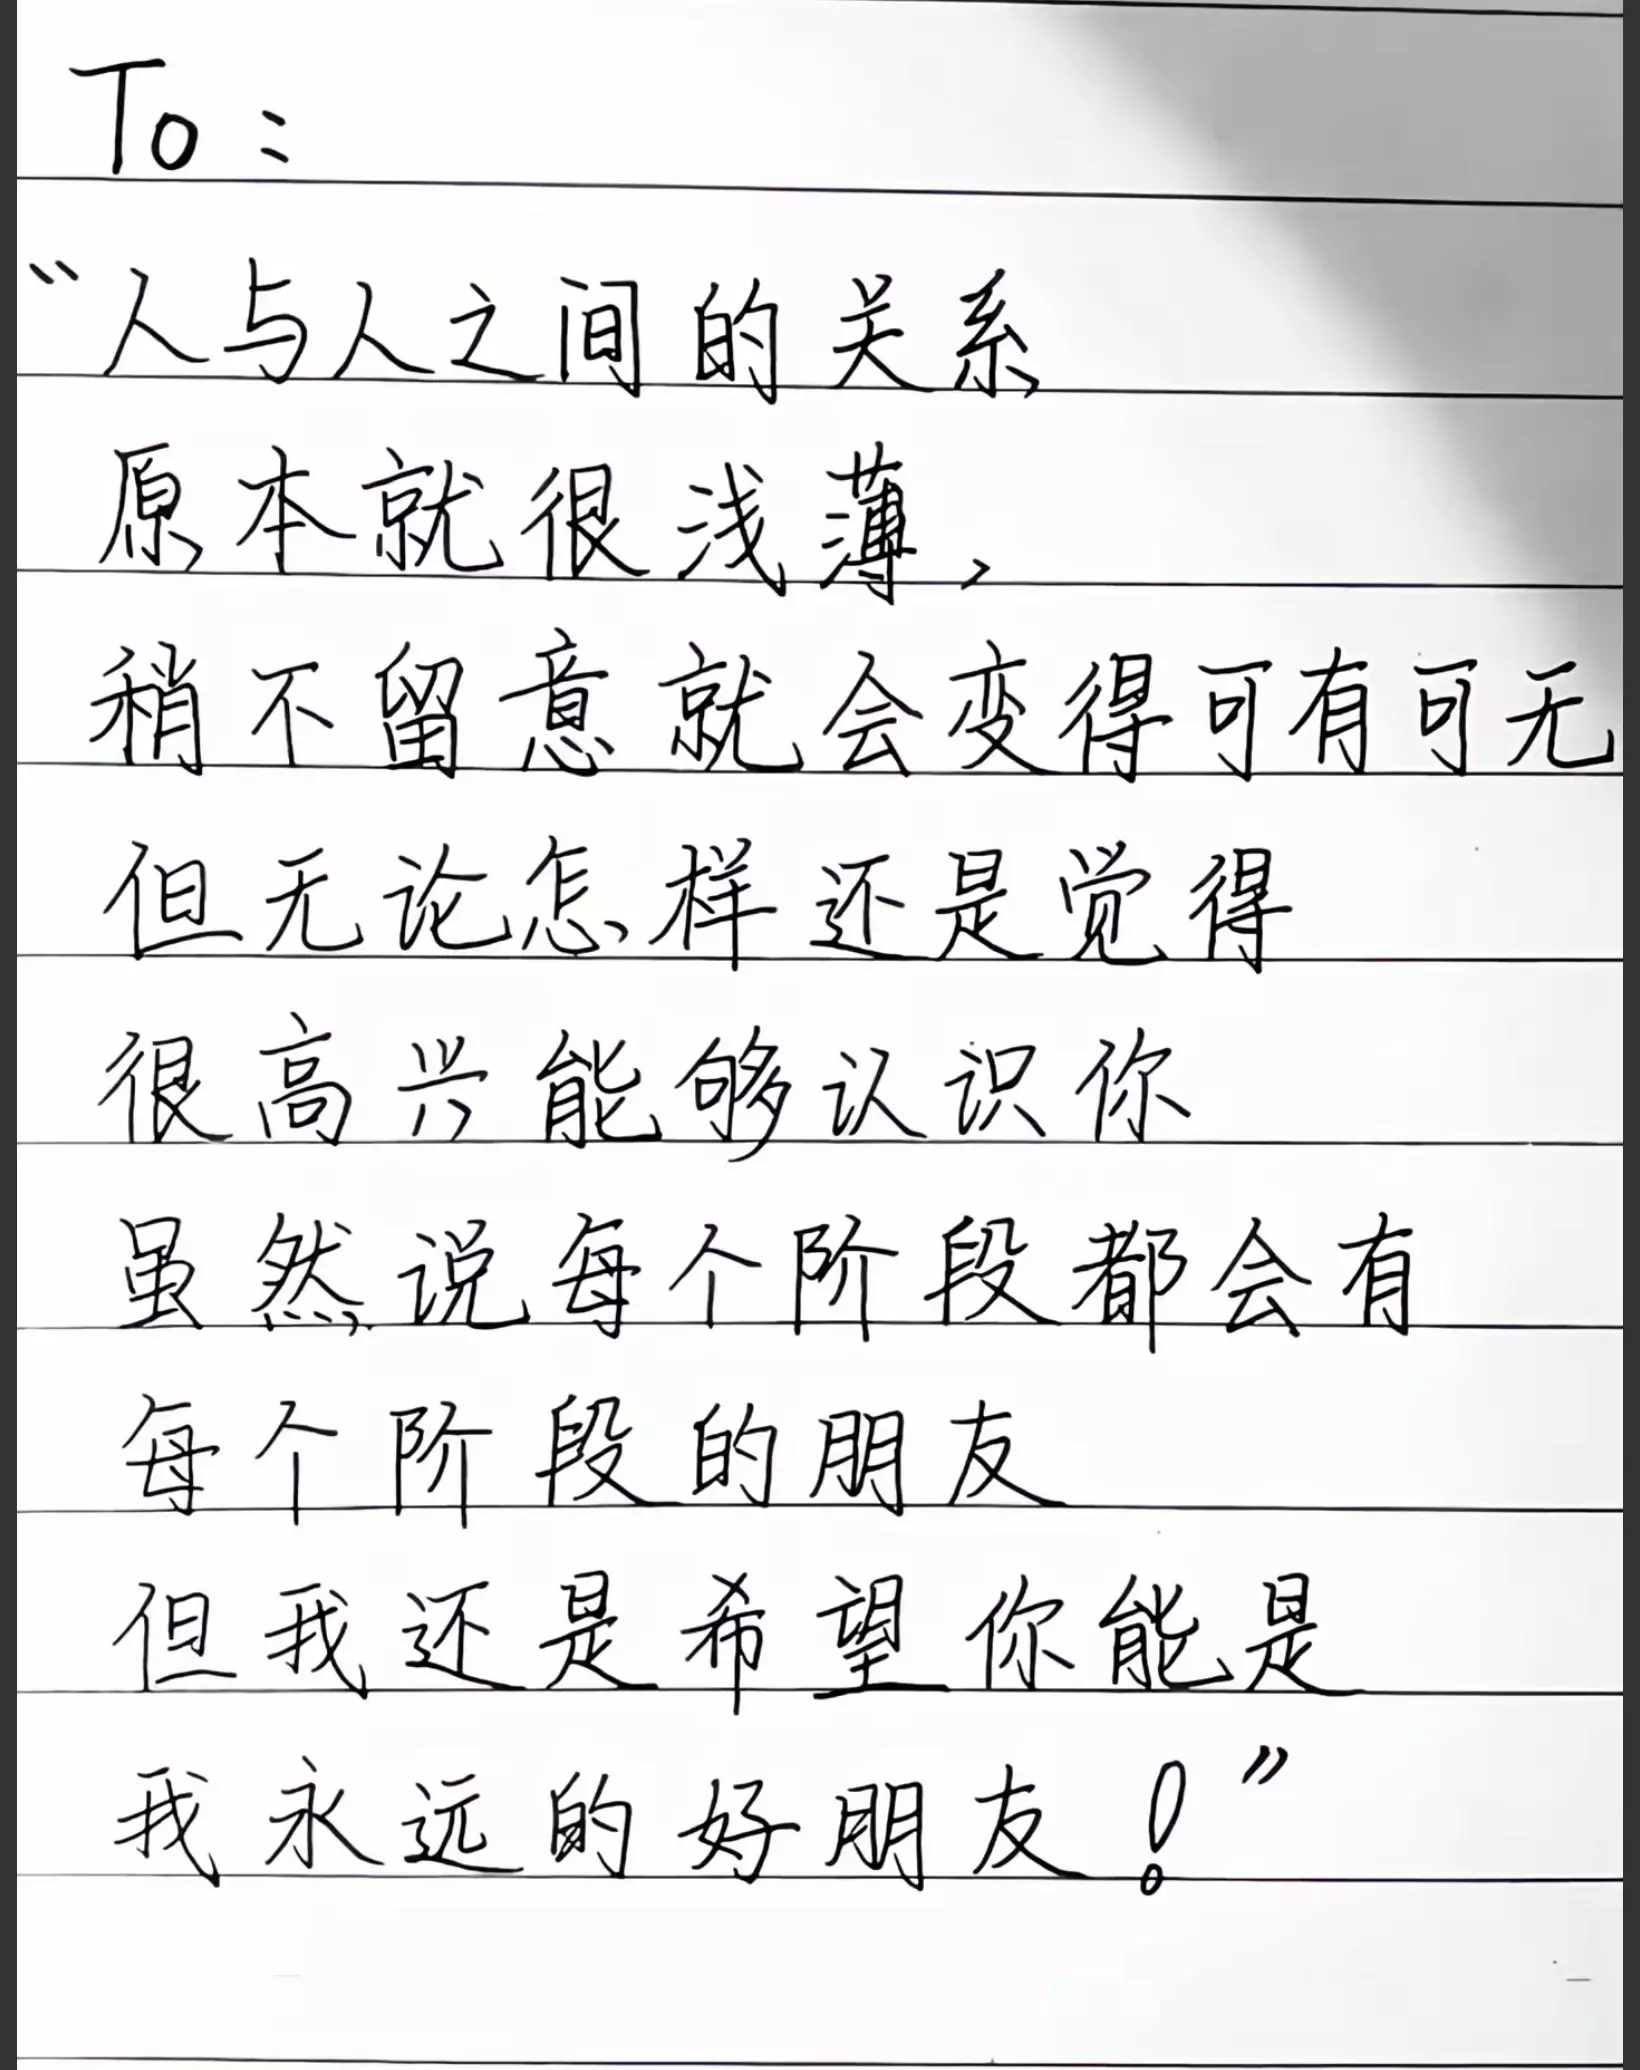 To：
“人与人之间的关系
原本就很浅薄，
稍不留意就会变得可有可无
但无论怎样还是觉得
很高兴能够认识你
虽然说每个阶段都会有
每个阶段的朋友
但我还是希望你能是
我永远的好朋友！”